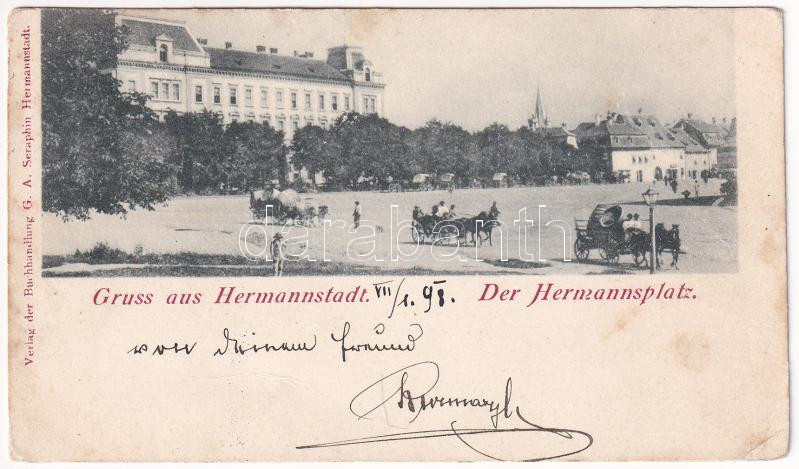 Verlag der Buchhandlung G. A. Seraphin Hermannstadt.
darabanth
Gruss aus Hermannstadt. VII/1. 98. Der Hermannsplatz.
von deinem Freund